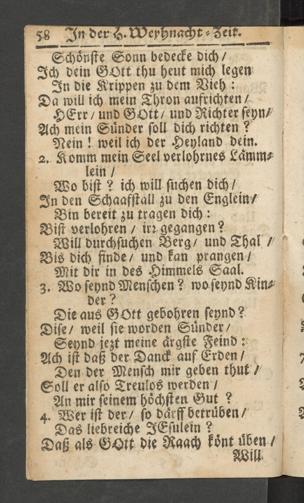 58 In der H. Weyhnacht-Zeit.
Schönste Sonn bedecke dich /
Ich dein GOtt thu heut mich legen
In die Krippen zu dem Vieh :
Da will ich mein Thron aufrichten /
HErr / und GOtt / und Richter seyn /
Ach mein Sünder soll dich richten ?
Nein ! weil ich der Heyland dein.
2. Komm mein Seel verlohrnes Lämm-
lein /
Wo bist ? ich will suchen dich /
In den Schaafstall zu den Englein /
Bin bereit zu tragen dich :
Bist verlohren / irr gegangen ?
Will durchsuchen Berg / und Thal /
Bis dich finde / und kan prangen /
Mit dir in des Himmels Saal.
3. Wo seynd Menschen ? wo seynd Kin-
der ?
Die aus GOtt gebohren seynd ?
Dise / weil sie worden Sünder /
Seynd jezt meine ärgste Feind :
Ach ist daß der Danck auf Erden /
Den der Mensch mir geben thut /
Soll er also Treulos werden /
An mir seinem höchsten Gut ?
4. Wer ist der / so därff betrüben /
Das liebreiche JEsulein ?
Daß als GOtt die Raach könt üben /
Will